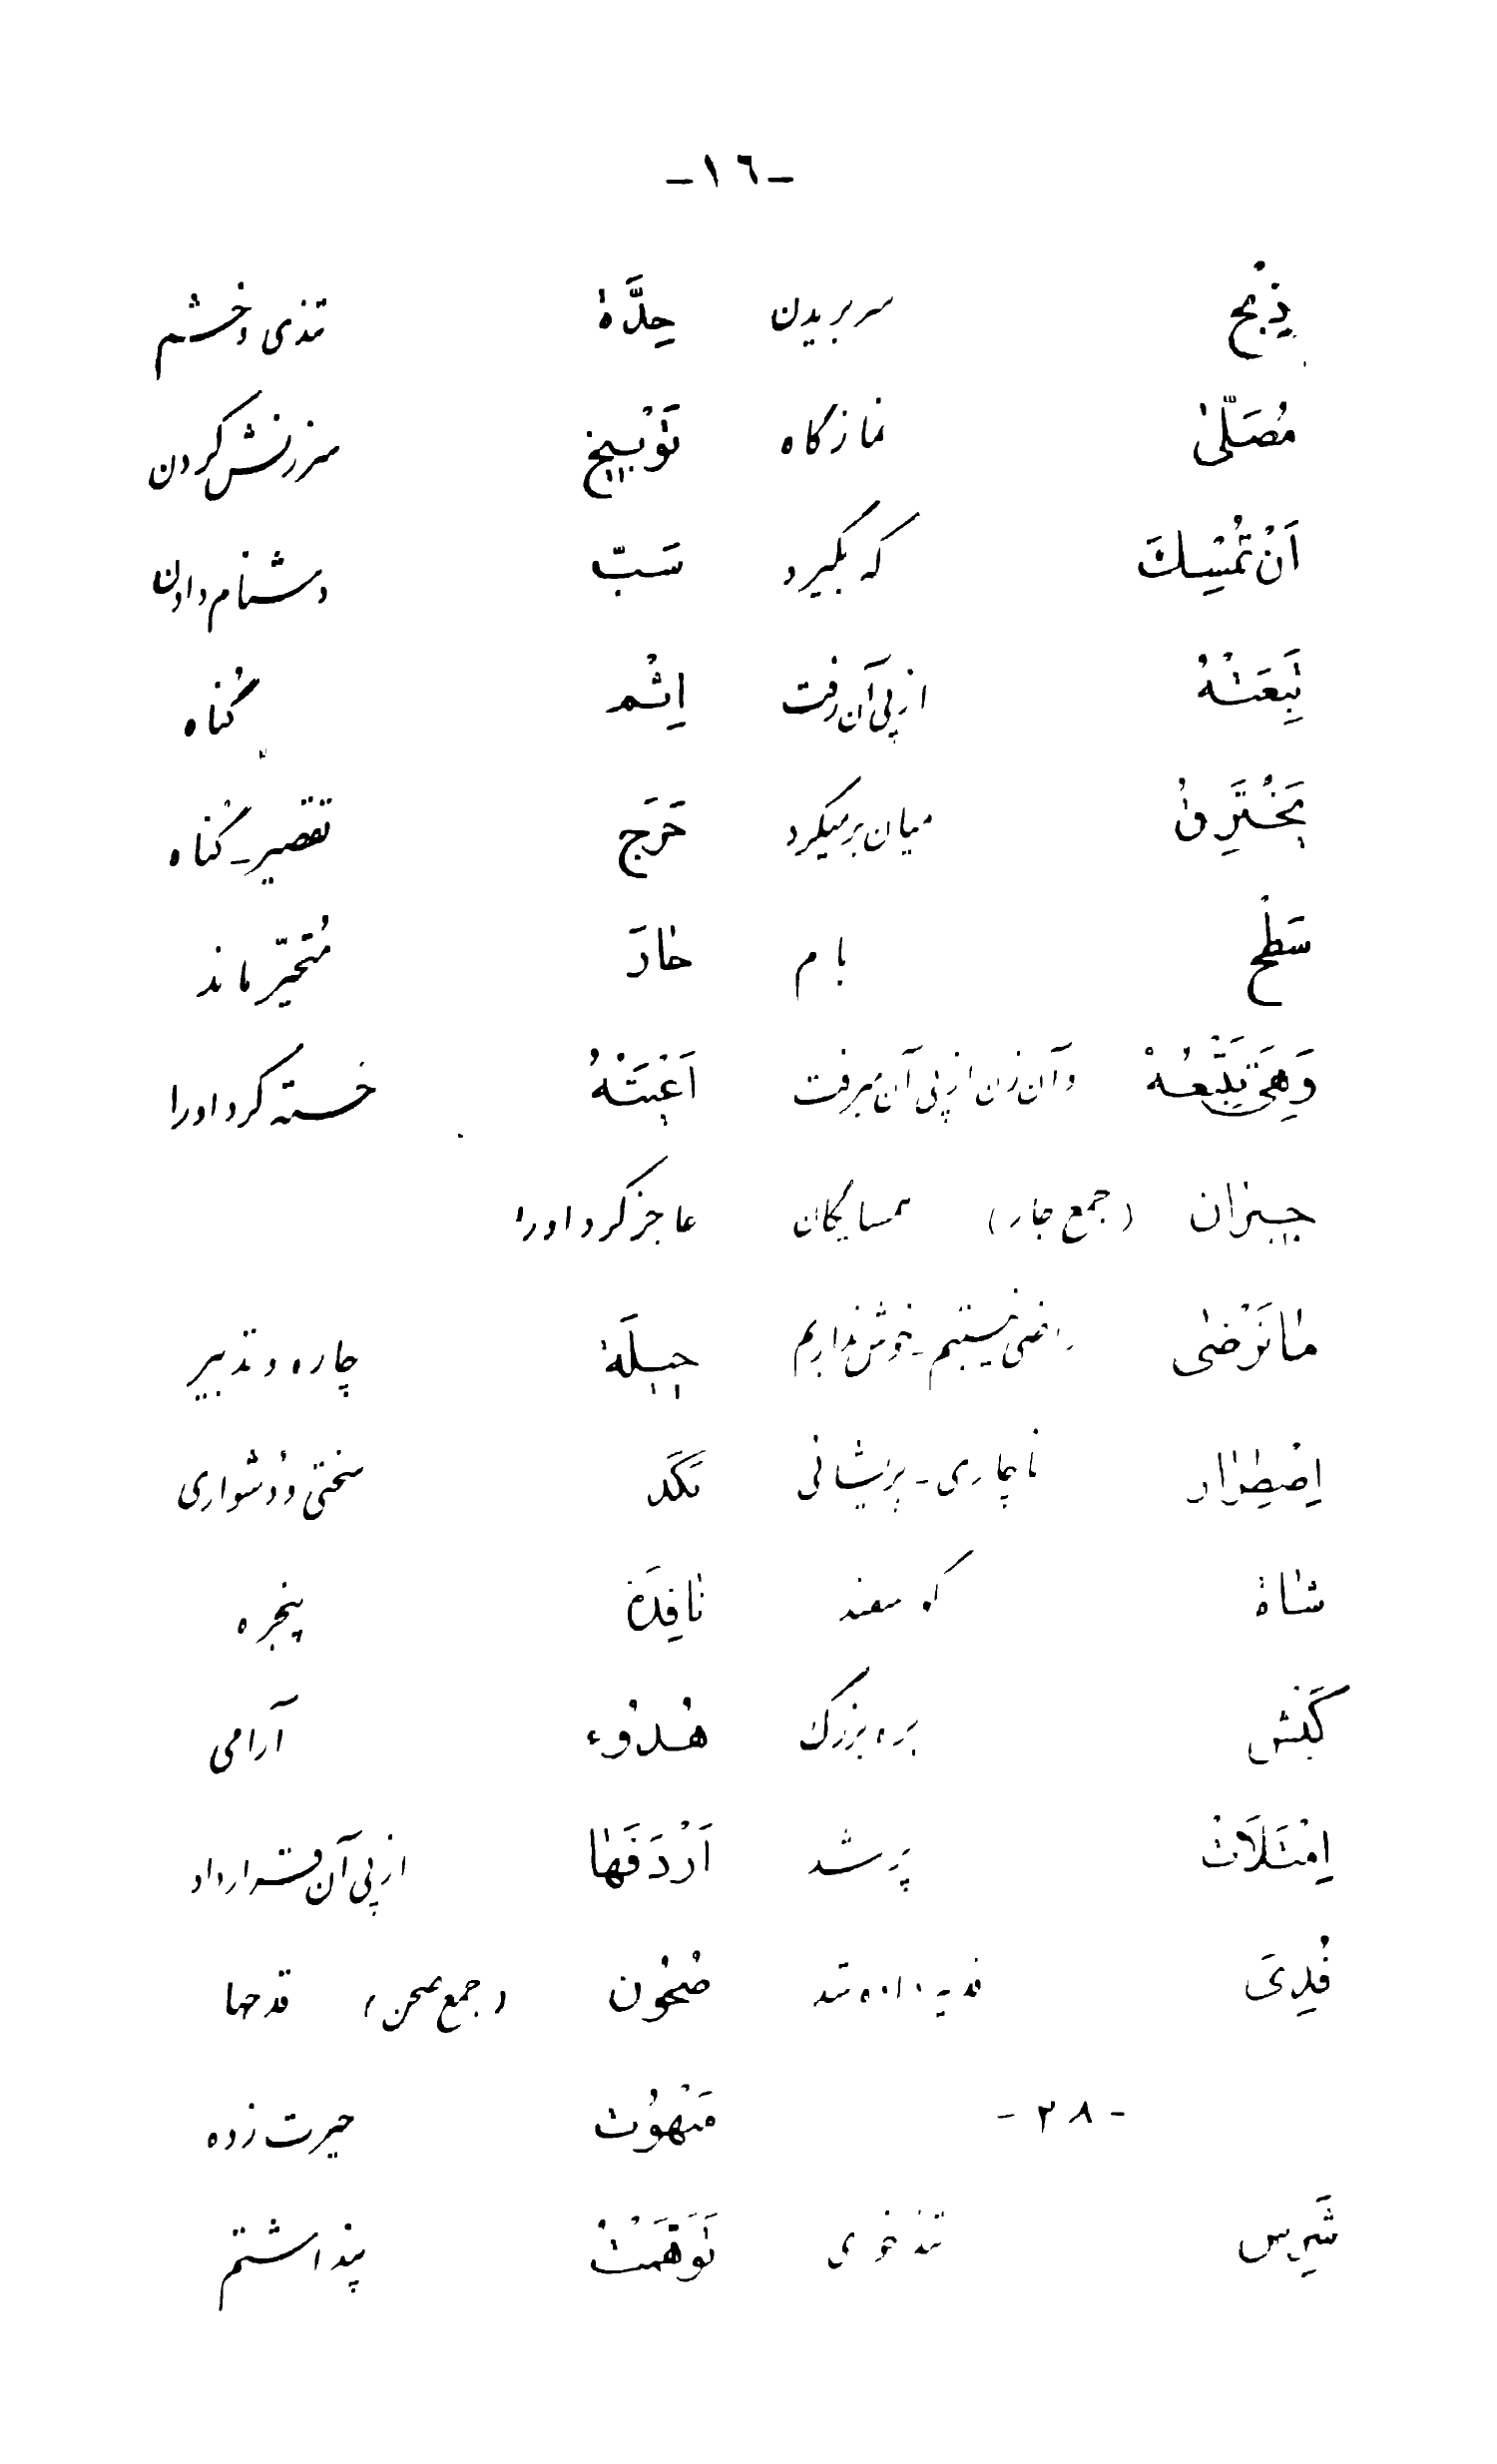 -١٦-
ذِبْح سر بریدن حِدَّة تندی و خشم
مُصَلّىٰ نمازگاه تَوْبيخ سرزنش کردن
اَنْ تُمْسِكَ که بگیرد سَبّ دشنام دادن
تَبِعَتْهُ از پی آن رفت اِثْم گُناه
يَخْتَرِقُ میان بر میکرد حَرَج تقصیر - گُناه
سَطْح بام حارَ مُتحیّر ماند
وَهِيَ تَتْبَعُهُ و آن زن از پی آن میرفت اَعْيَتْهُ خسته کرد او را
جيران (جمع جار) همسایگان عاجز کرد او را
ما نَرْضىٰ راضی نیستیم - خوش نداریم حيلَة چاره و تدبیر
اِضْطِرار ناچاری - پریشانی نَكَد سختی و دُشواری
شاة گوسفند نافِذَة پنجره
كَبْش بره بزرگ هُدُوء آرامی
اِمْتَلَأَتْ پُر شد اَرْدَفَها از پی آن قرار داد
فُدِيَ فدیه داده شد صُحُون (جمع صحن) قدحها
-٢٨- مَبْهُوت حیرت زده
شَرِس تندخوی تَوَهَّمْتُ پنداشتم